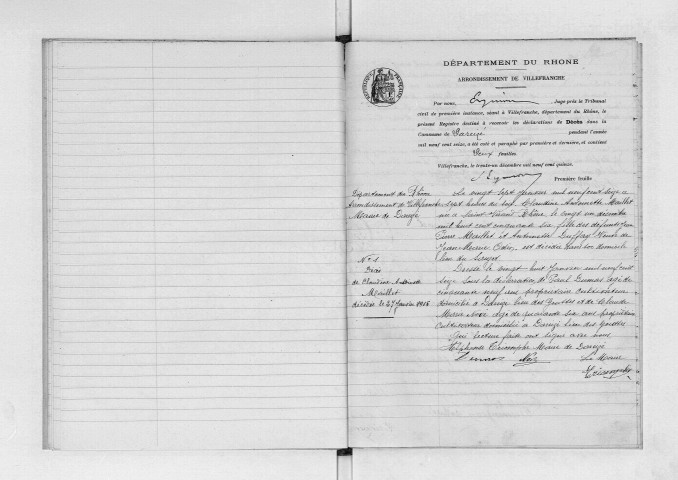 DÉPARTEMENT DU RHONE
ARRONDISSEMENT DE VILLEFRANCHE
RÉPUBLIQUE FRANÇAISE
Par nous, Juge près le Tribunal
civil de première instance, séant à Villefranche, département du Rhône, le
présent Registre destiné à recevoir les déclarations de Décès dans la
Commune de Dareizé pendant l'année
mil neuf cent seize, a été coté et paraphé par première et dernière, et contient
feuilles
Villefranche, le trente-un décembre mil neuf cent quinze.
Première feuille
Département du Rhône
Arrondissement de Villefranche
Mairie de Dareizé
N° 1
Décès
de Claudine Antoinette
Maillet
décédée le 27 Janvier 1916
Le vingt sept Janvier mil neuf cent seize à
sept heures du soir, Claudine Antoinette Maillet
née à Saint Vérand Rhône, le vingt un décembre
mil huit cent cinquante six fille des défunts Jean
Pierre Maillet et Antoinette Veuve de
Jean Marie est décédée dans son domicile
lieu du
Dressé le vingt huit Janvier mil neuf cent
seize sous la déclaration de Paul Dumas âgé de
cinquante neuf ans propriétaire cultivateur
domicilié à Dareizé lieu des Gouttes et de Claude
Marie âgé de quarante six ans propriétaire
cultivateur domicilié à Dareizé lieu des Gouttes
Qui lecture faite ont signé avec nous
Maire de Dareizé
Dumas Le Maire